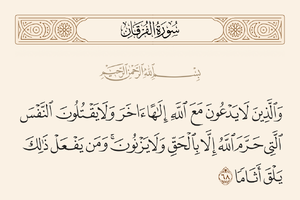 سُورَةُ الفُرْقَانِ
بِسْمِ اللَّهِ الرَّحْمَٰنِ الرَّحِيمِ
وَالَّذِينَ لَا يَدْعُونَ مَعَ اللَّهِ إِلَٰهًا ءَاخَرَ وَلَا يَقْتُلُونَ النَّفْسَ
الَّتِي حَرَّمَ اللَّهُ إِلَّا بِالْحَقِّ وَلَا يَزْنُونَ ۚ وَمَن يَفْعَلْ ذَٰلِكَ
يَلْقَ أَثَامًا ٦٨